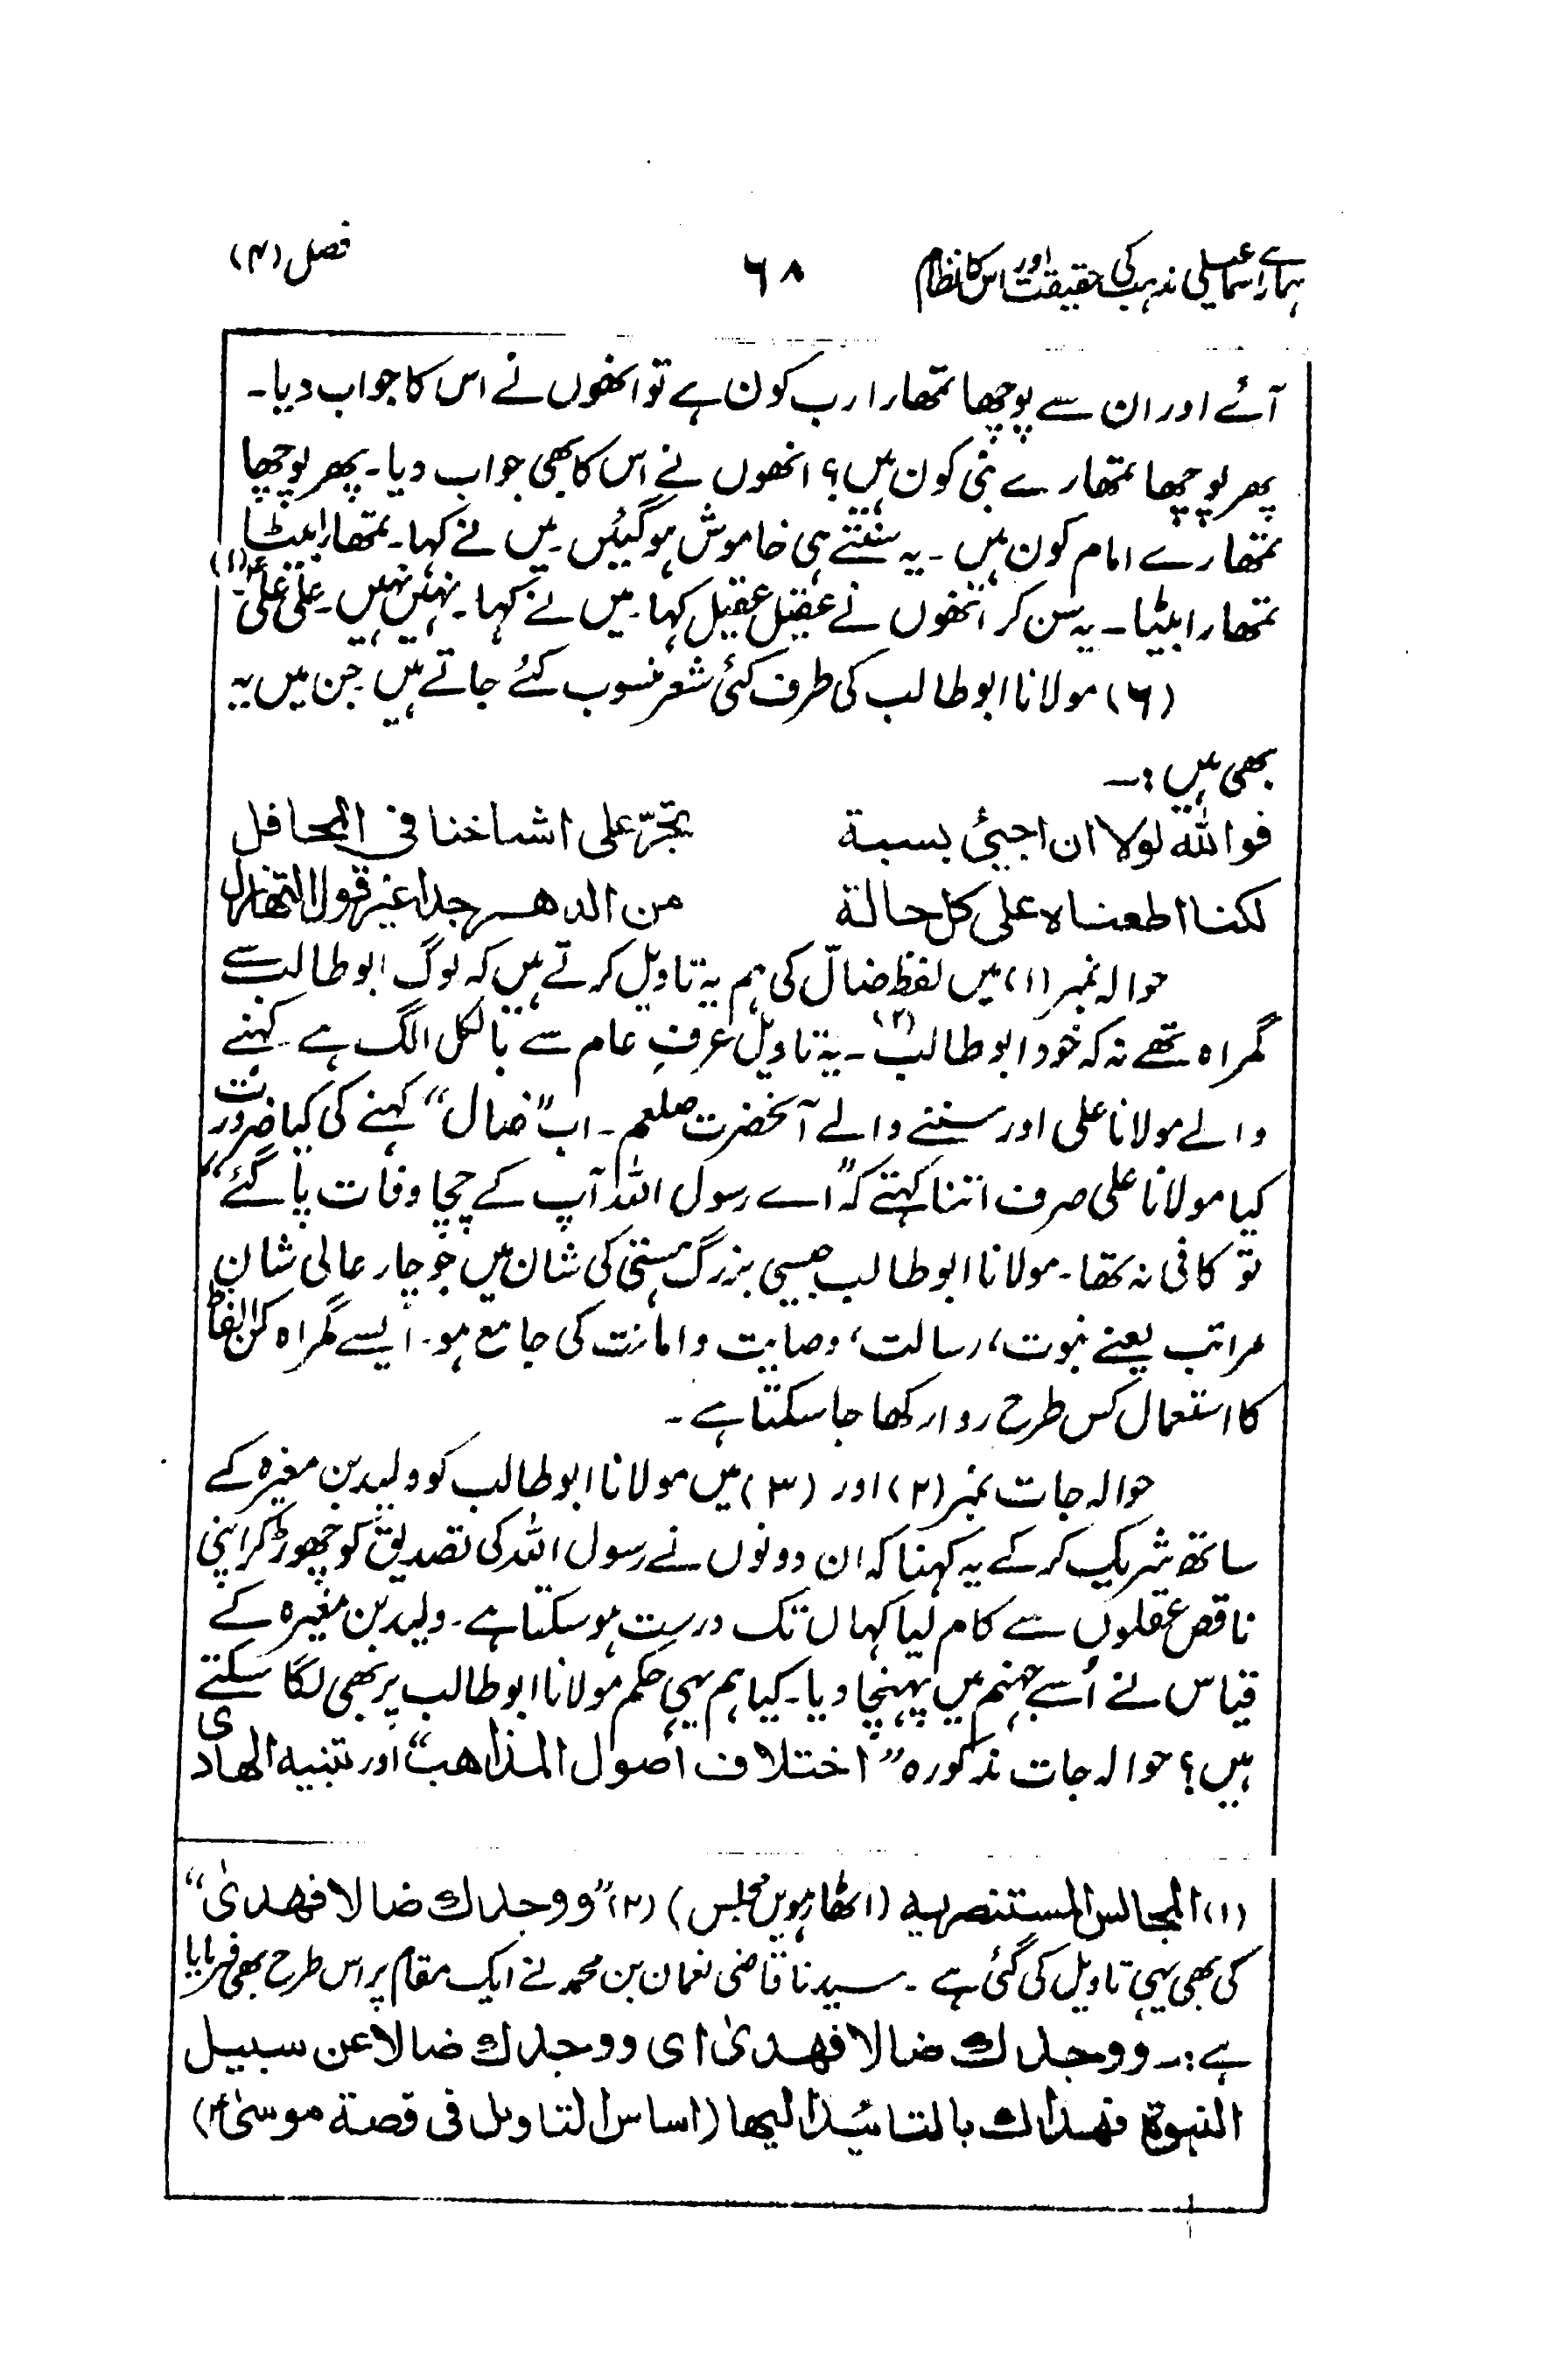 ہمارے اسماعیلی مذہب کی حقیقت اور اس کا نظام
۶۸
فصل (۴)
آئے اور ان سے پوچھا تمھارا رب کون ہے تو انھوں نے اس کا جواب دیا۔
پھر پوچھا تمھارے نبی کون ہیں؟ انھوں نے اس کا بھی جواب دیا۔ پھر پوچھا
تمھارے امام کون ہیں۔ یہ سنتے ہی خاموش ہوگئیں۔ میں نے کہا۔ تمھارا بیٹا
تمھارا بیٹا۔ یہ سن کر انھوں نے عقیل عقیل کہا۔ میں نے کہا۔ نہیں نہیں۔ علی علی۔(۱)
(۶) مولانا ابوطالب کی طرف کئی شعر منسوب کئے جاتے ہیں جن میں یہ
بھی ہیں :۔
فواللہ لولا ان اجیئ بسبة تجرّ علی اشیاخنا فی المحافل
لکنا اطعناہ علی کل حالة من الدھر جدا غیر قول التھازل
حوالہ نمبر (۱) میں لفظ ضالّ کی ہم یہ تاویل کرتے ہیں کہ لوگ ابوطالب سے
گمراہ تھے نہ کہ خود ابوطالب(۲)۔ یہ تاویل عرفِ عام سے بالکل الگ ہے۔ کہنے
والے مولانا علی اور سننے والے آنحضرت صلعم۔ اب ”ضال“ کہنے کی کیا ضرورت
کیا مولانا علی صرف اتنا کہتے کہ ”اے رسول اللہ آپ کے چچا وفات پا گئے“
تو کافی نہ تھا۔ مولانا ابوطالب جیسی بزرگ ہستی کی شان میں جو چار عالی شان
مراتب یعنے نبوت، رسالت، وصایت و امانت کی جامع ہو۔ ایسے گمراہ کن الفاظ
کا استعمال کس طرح روا رکھا جا سکتا ہے۔
حوالہ جات نمبر (۲) اور (۳) میں مولانا ابوطالب کو ولید بن مغیرہ کے
ساتھ شریک کر کے یہ کہنا کہ ان دونوں نے رسول اللہ کی تصدیق کو چھوڑ کر اپنی
ناقص عقلوں سے کام لیا کہاں تک درست ہو سکتا ہے۔ ولید بن مغیرہ کے
قیاس نے اُسے جہنم میں پہنچا دیا۔ کیا ہم یہی حکم مولانا ابوطالب پر بھی لگا سکتے
ہیں؟ حوالہ جات مذکورہ ”اختلاف اصول المذاھب“ اور تنبیہ الھادی
(۱) المجالس المستنصریہ (اٹھارہویں مجلس) (۲) ”ووجدك ضالا فھدیٰ“
کی بھی یہی تاویل کی گئی ہے۔ سیدنا قاضی نعمان بن محمد نے ایک مقام پر اس طرح بھی فرمایا
ہے:۔ ووجدك ضالا فھدیٰ ای ووجدك ضالا عن سبیل
النبوة فھداك بالتائید الیھا (اساس التاویل فی قصة موسیٰؑ)